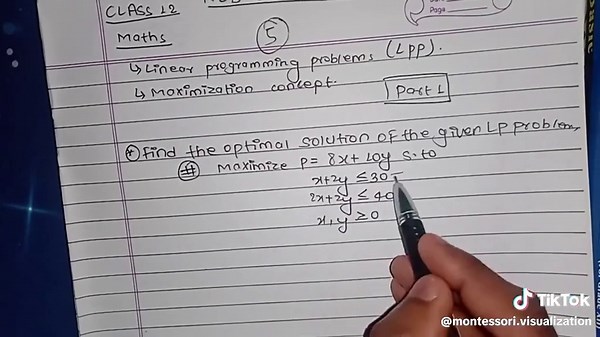 CLASS 12
Page
Maths
5
↳ Linear programming problems (Lpp).
↳ Maximization concept.
Part 1
Find the optimal solution of the given LP problem,
# Maximize P = 8x + 10y s.to
x+2y ≤ 30
2x+2y ≤ 40
x, y ≥ 0
TikTok
@montessori.visualization